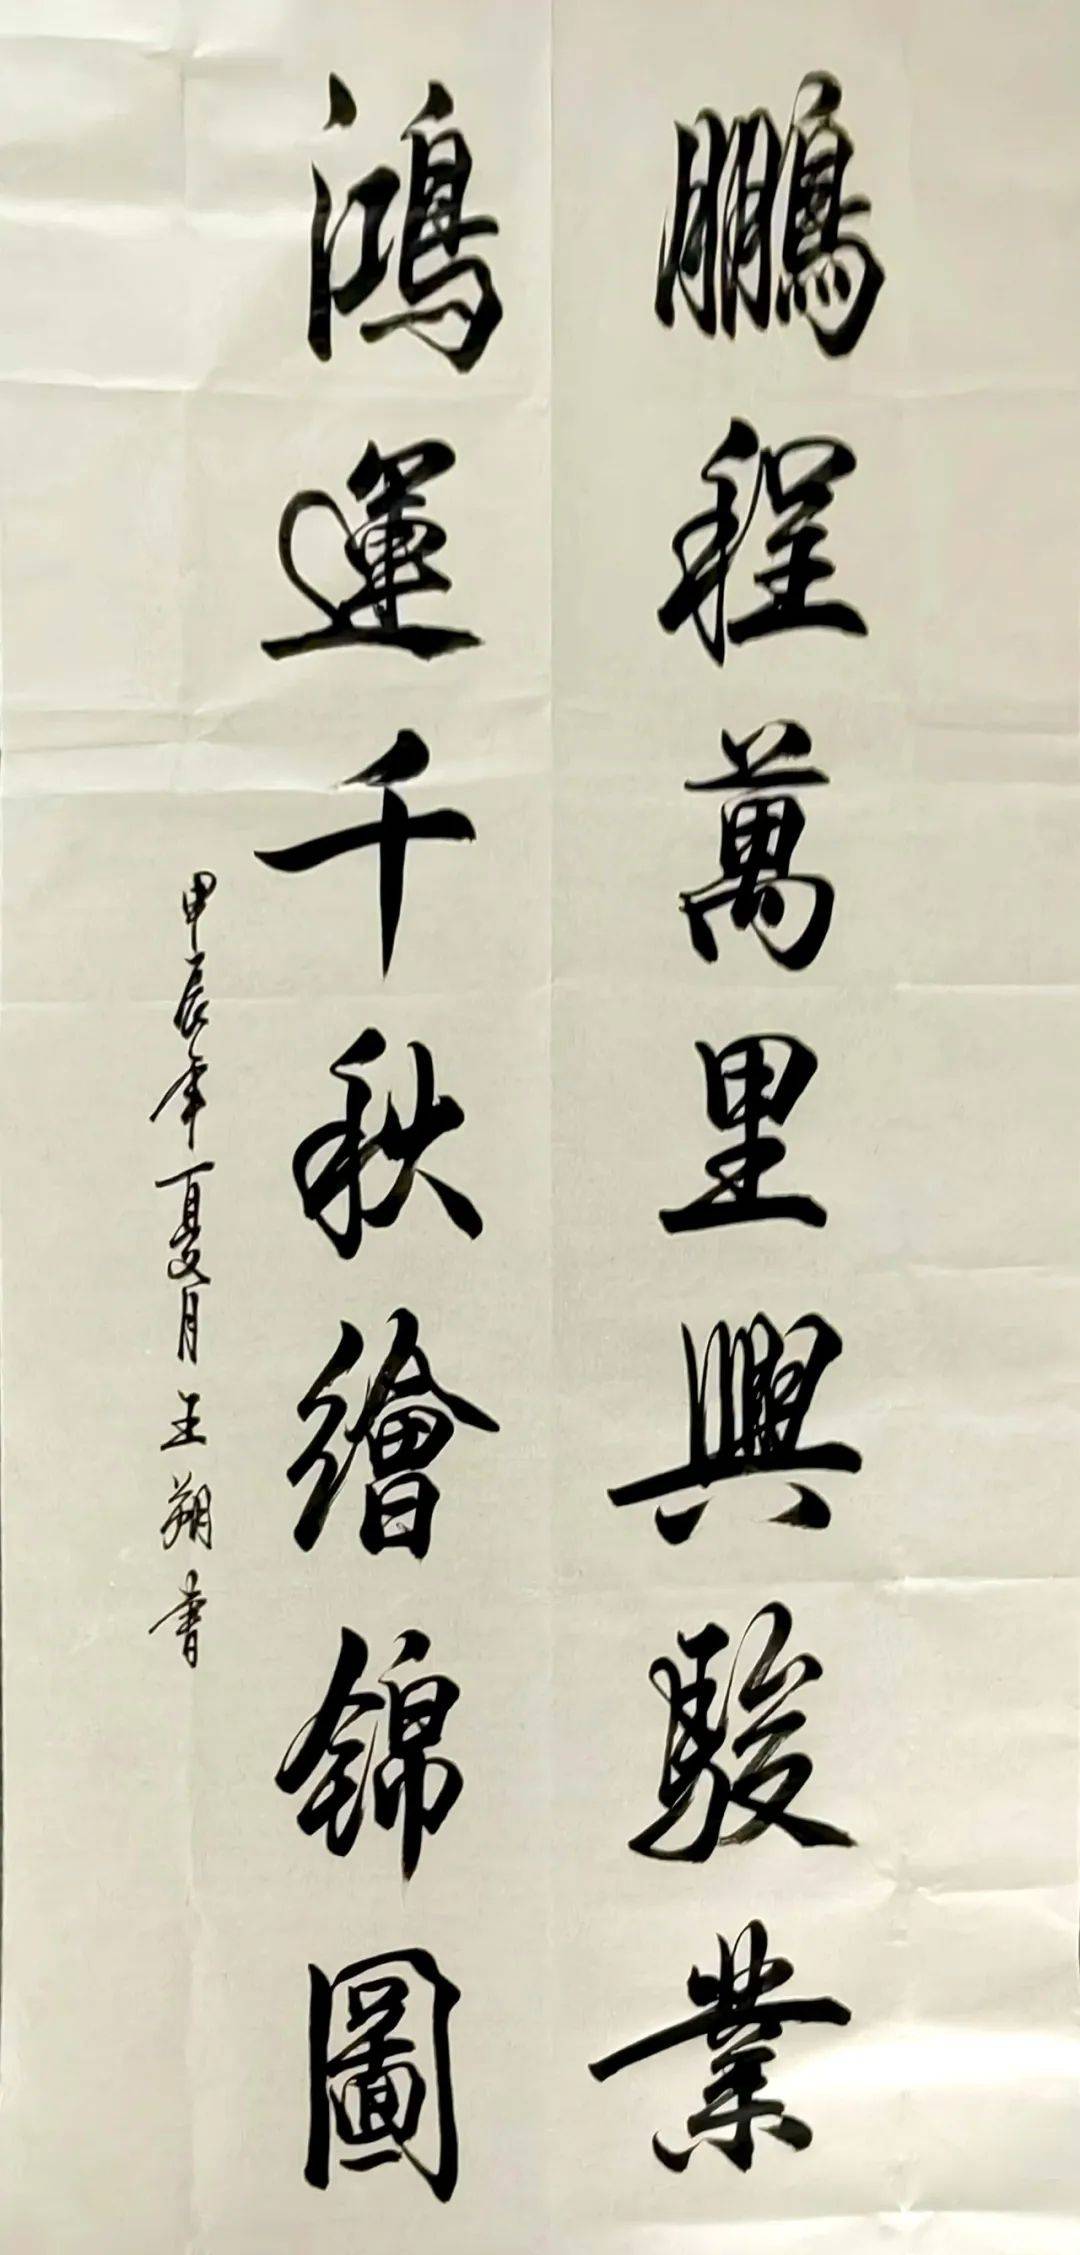 鵬程萬里興駿業
鴻運千秋繪錦圖
甲辰年夏月王朔書